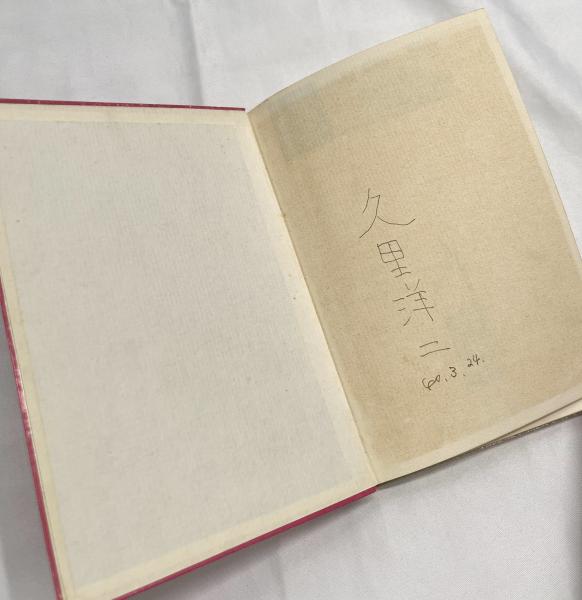 久里洋二
40.3.24.